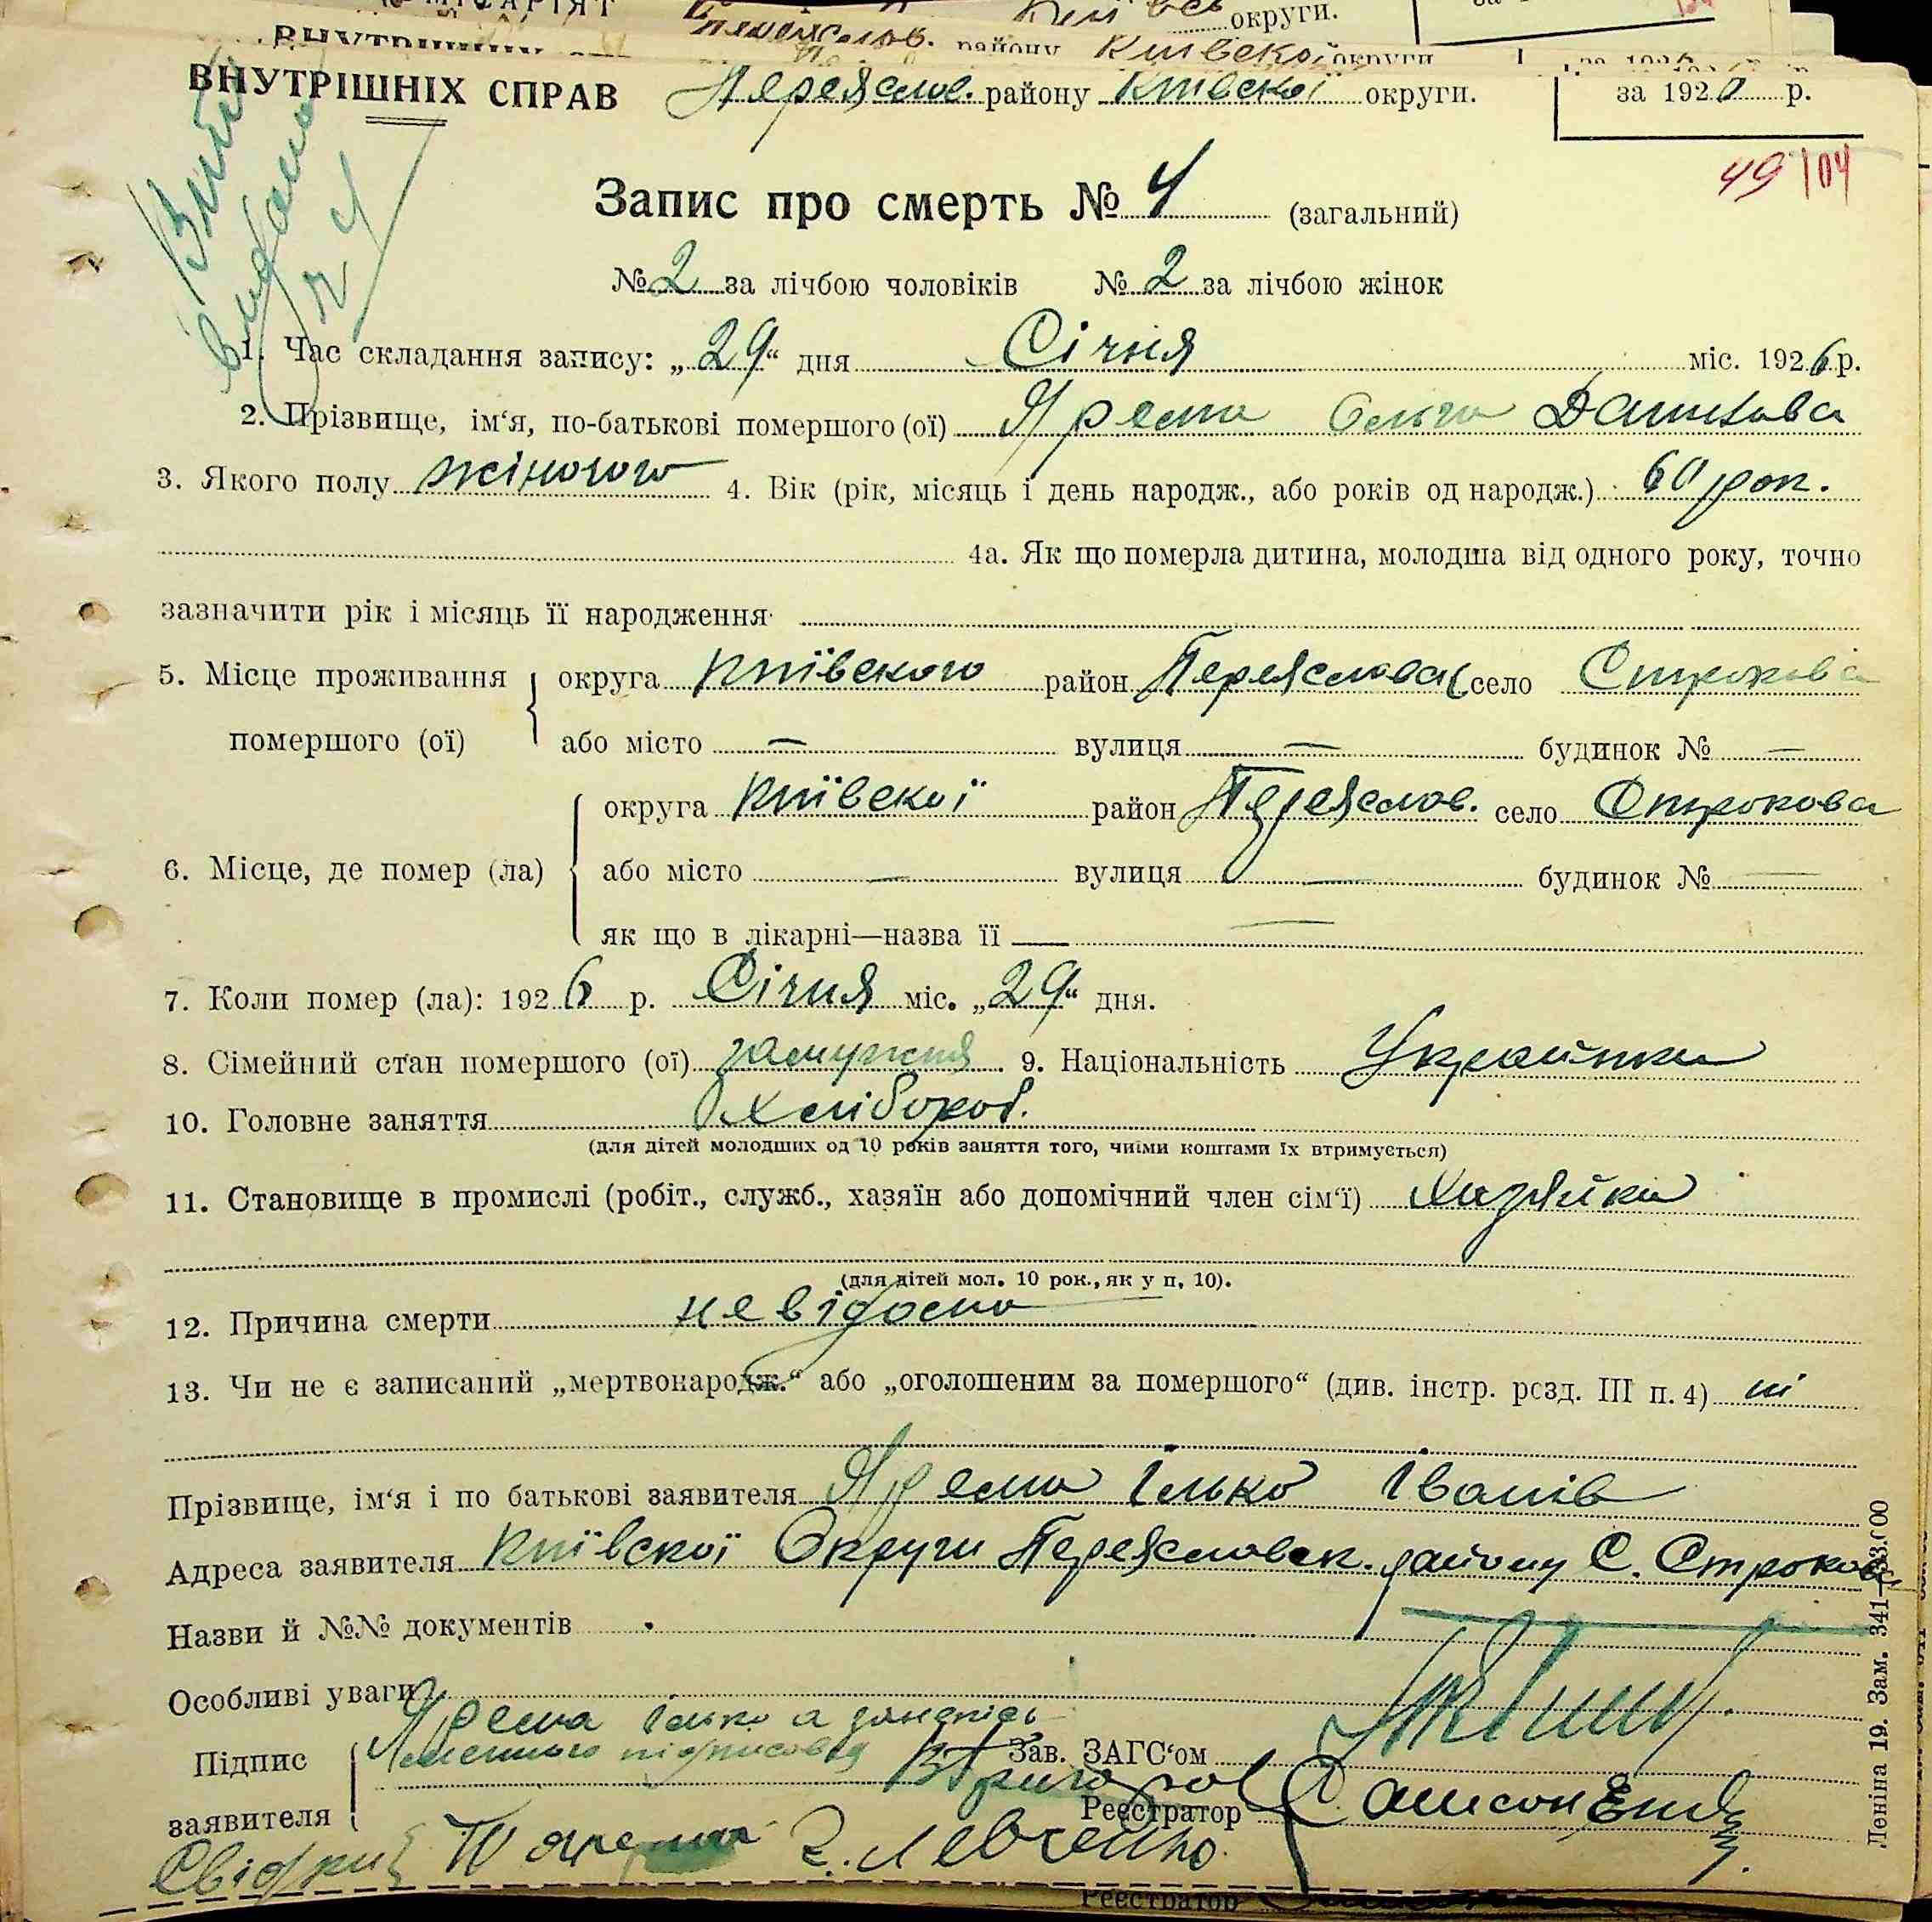 округи.
району Київської округи
ВНУТРІШНІХ СПРАВ Переяслов. району Київської округи. за 192 р.
49 104
Витяг видано
Запис про смерть № 4 (загальний)
№ 2 за лічбою чоловіків № 2 за лічбою жінок
1. Час складання запису: „29“ дня Січня міс. 1926 р.
2. Прізвище, ім‘я, по-батькові помершого (ої) Ярема Ольга Данилова
3. Якого полу жіночого 4. Вік (рік, місяць і день народж., або років од народж.) 60 рок.
4а. Як що померла дитина, молодша від одного року, точно
зазначити рік і місяць її народження
5. Місце проживання помершого (ої) округа Київского район Переяслова село Строкова
або місто — вулиця — будинок № —
6. Місце, де помер (ла) округа Київскої район Переяслов. село Строкова
або місто — вулиця — будинок № —
як що в лікарні—назва її —
7. Коли помер (ла): 1926 р. Січня міс. „29“ дня.
8. Сімейний стан помершого (ої) замужня. 9. Національність Українка
10. Головне заняття Хлібороб.
(для дітей молодших од 10 років заняття того, чиїми коштами їх втримується)
11. Становище в промислі (робіт., служб., хазяїн або допомічний член сім‘ї) Хазяйка
(для дітей мол. 10 рок., як у п. 10).
12. Причина смерти невідома
13. Чи не є записаний „мертвонародж.“ або „оголошеним за помершого“ (див. інстр. розд. III п. 4) ні
Прізвище, ім‘я і по батькові заявителя Ярема Ілько Іванів
Адреса заявителя Київскої Округи Переясловск. району С. Строкова
Назви й №№ документів
Особливі уваги
Підпис заявителя Ярема Ілько а
Зав. ЗАГС‘ом
Реєстратор Самсоненко
Свідки Ярема З. Левченко
Реєстратор
Леніна 19. Зам. 341—53.000